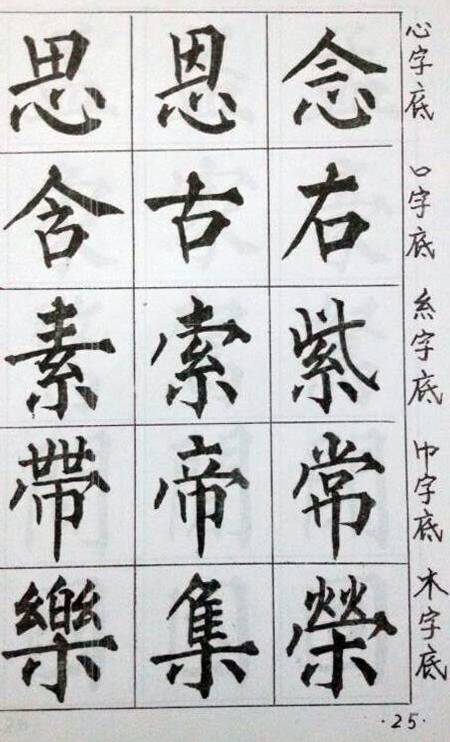 心字底
念恩思
口字底
右古含
糸字底
紫索素
巾字底
常帝帶
木字底
榮集樂
·25·